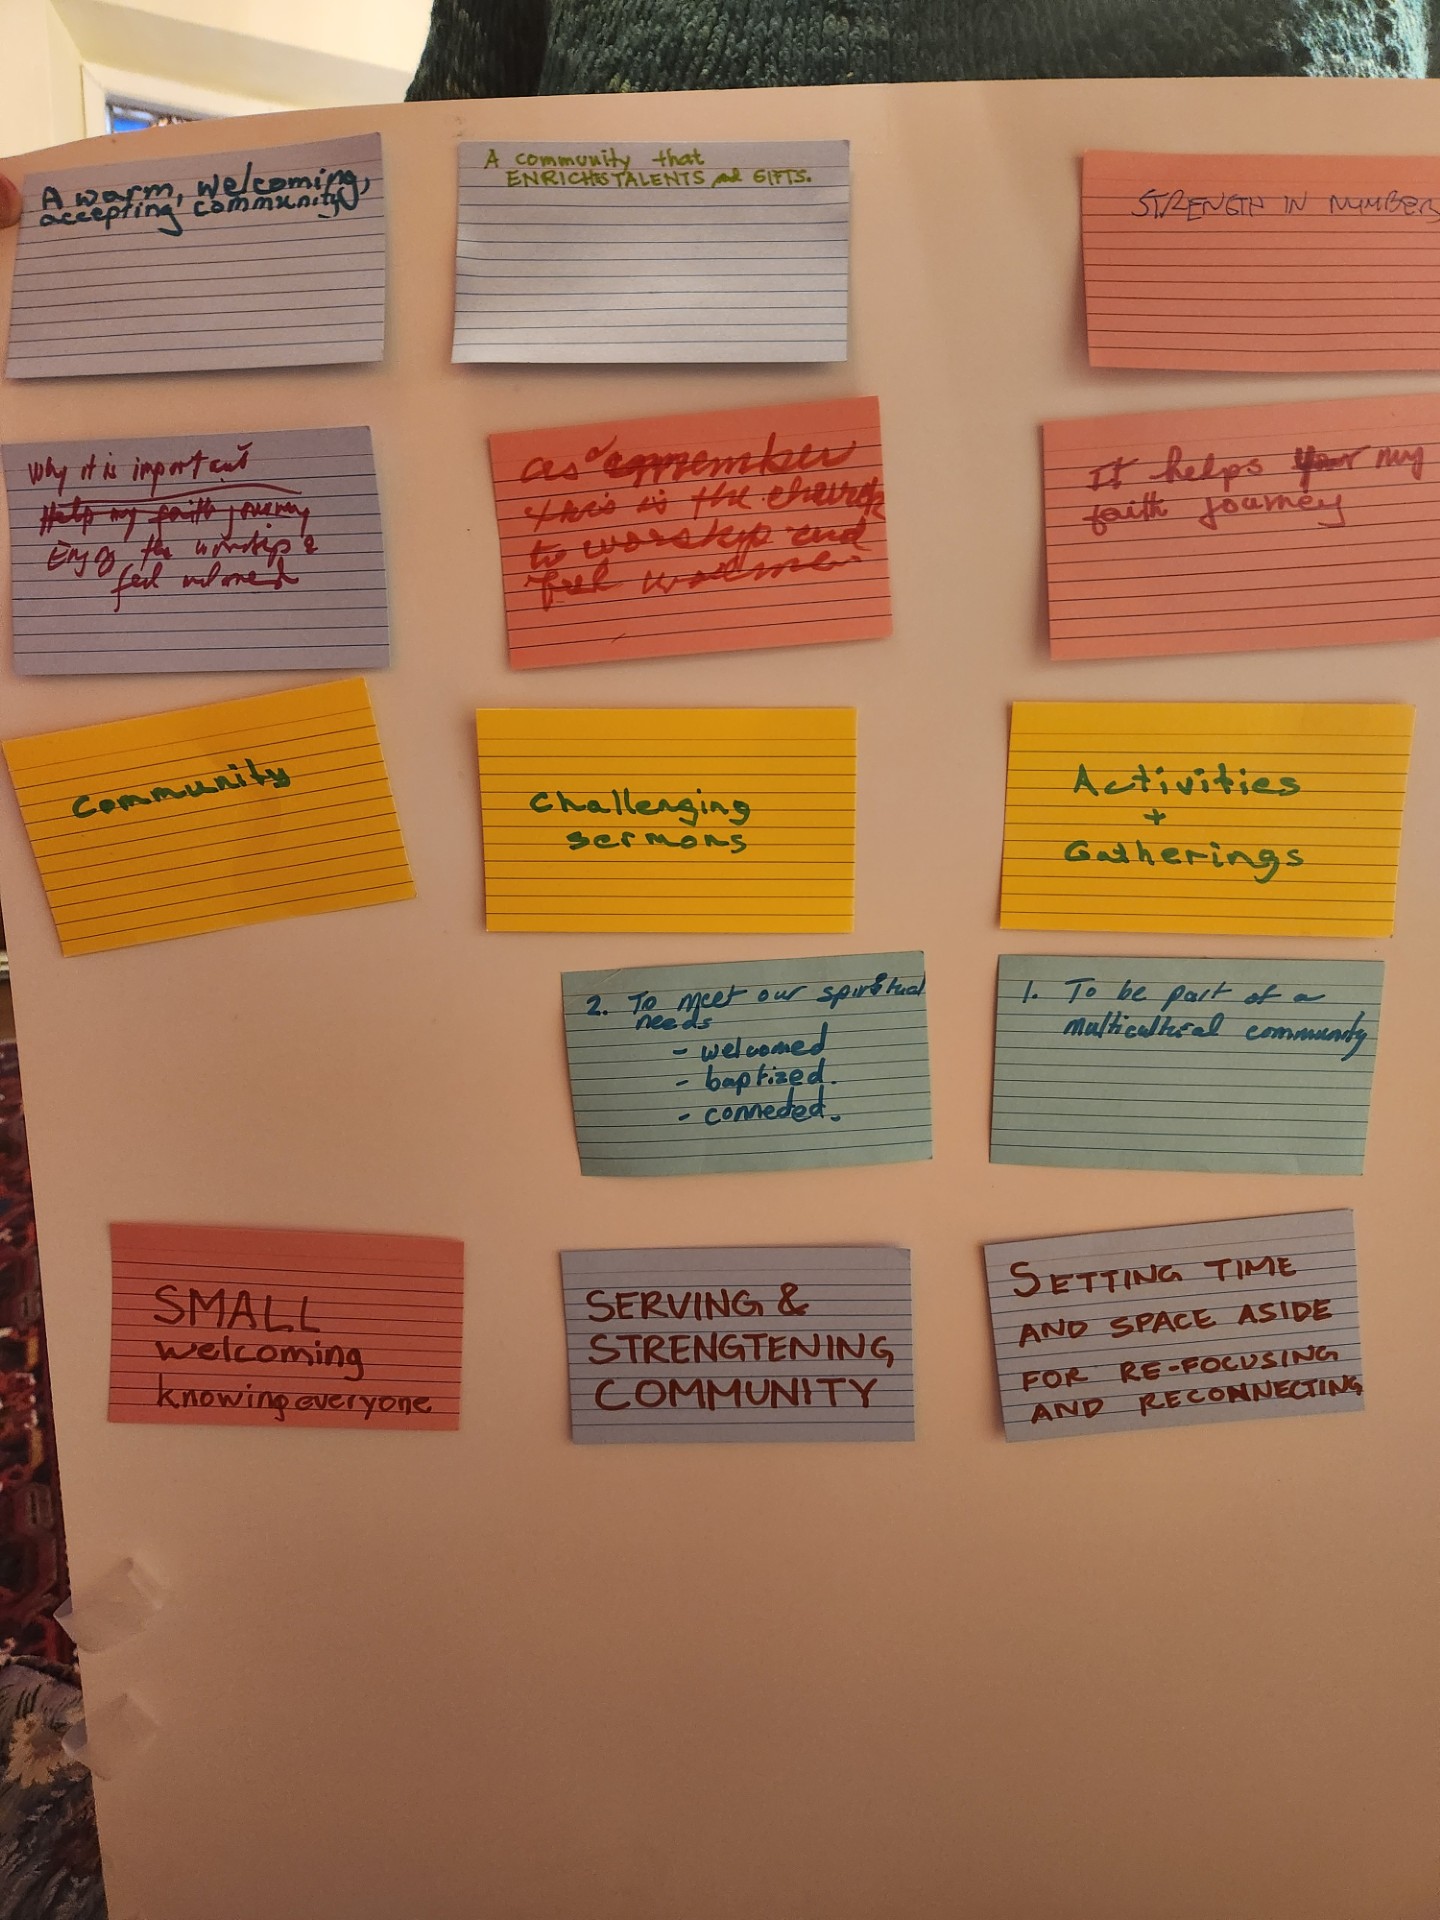 A warm, welcoming,
accepting community
A community that
ENRICHES TALENTS and GIFTS.
STRENGTH IN NUMBERS
Why it is important
Help my faith journey
Enjoy the worship &
feel welcomed
as a member
this is the church
to worship and
feel
It helps my
faith journey
Community
Challenging
sermons
Activities
+
Gatherings
2. To meet our spiritual
needs
- welcomed
- baptized.
- conneded.
1. To be part of a
multicultural community
SMALL
welcoming
knowing everyone
SERVING &
STRENGTENING
COMMUNITY
SETTING TIME
AND SPACE ASIDE
FOR RE-FOCUSING
AND RECONNECTING